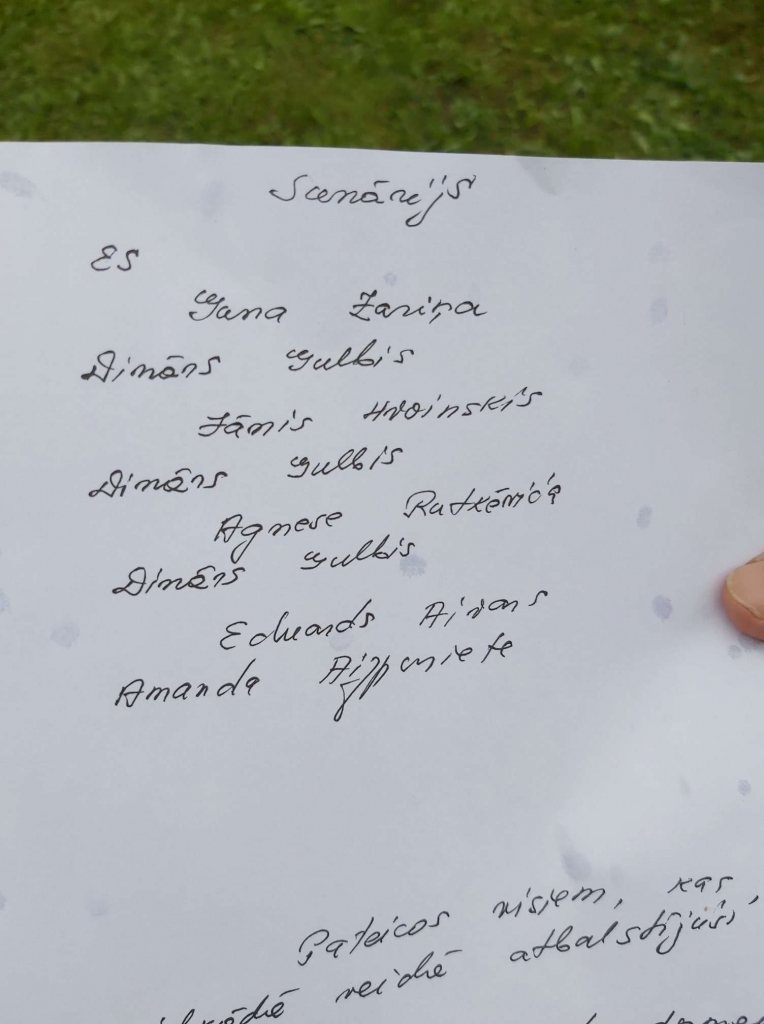 Scenārijs
ES
Yana Zariņa
Dinārs Gulbis
Jānis Hroinskis
Dinārs Gulbis
Agnese Rutkēviča
Dinārs Gulbis
Eduards Aivars
Amanda Aizpuriete
Pateicos visiem, kas
veidē atbalstījuši,